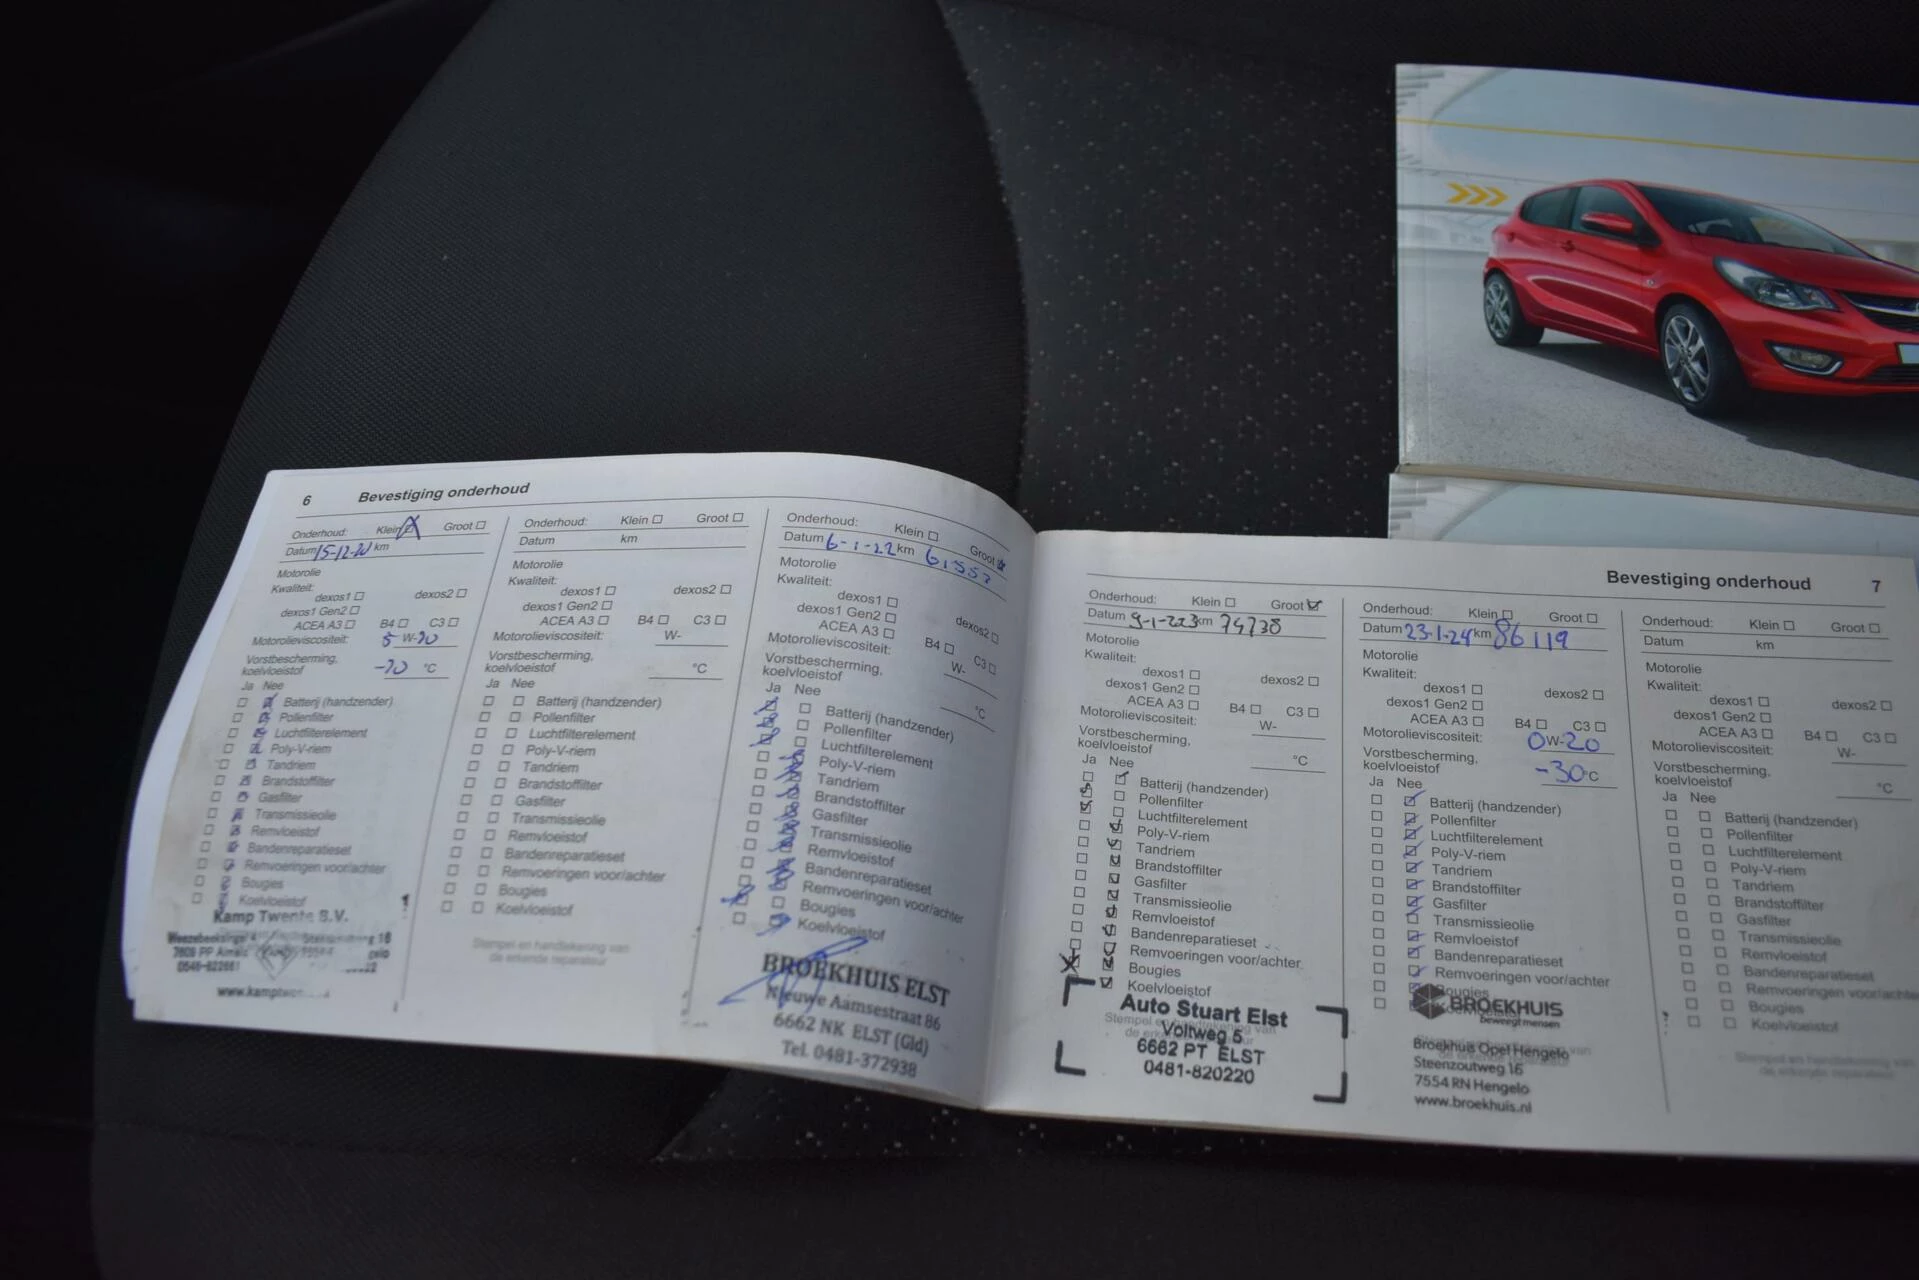 6 Bevestiging onderhoud
Onderhoud: Klein Groot
Datum 15-12-20 km
Motorolie
Kwaliteit:
dexos1 dexos2
dexos1 Gen2
ACEA A3 B4 C3
Motorolieviscositeit: 5 W-
Vorstbescherming,
koelvloeistof °C
Ja Nee
Batterij (handzender)
Pollenfilter
Luchtfilterelement
Poly-V-riem
Tandriem
Brandstoffilter
Gasfilter
Transmissieolie
Remvloeistof
Bandenreparatieset
Remvoeringen voor/achter
Bougies
Koelvloeistof
Kamp Twente B.V.
0546-822661
Onderhoud: Klein Groot
Datum km
Motorolie
Kwaliteit:
dexos1 dexos2
dexos1 Gen2
ACEA A3 B4 C3
Motorolieviscositeit: W-
Vorstbescherming,
koelvloeistof °C
Ja Nee
Batterij (handzender)
Pollenfilter
Luchtfilterelement
Poly-V-riem
Tandriem
Brandstoffilter
Gasfilter
Transmissieolie
Remvloeistof
Bandenreparatieset
Remvoeringen voor/achter
Bougies
Koelvloeistof
Stempel en handtekening van
de erkende reparateur
Onderhoud: Klein Groot
Datum 6-1-22 km 61553
Motorolie
Kwaliteit:
dexos1 dexos2
dexos1 Gen2
ACEA A3 B4 C3
Motorolieviscositeit: W-
Vorstbescherming,
koelvloeistof °C
Ja Nee
Batterij (handzender)
Pollenfilter
Luchtfilterelement
Poly-V-riem
Tandriem
Brandstoffilter
Gasfilter
Transmissieolie
Remvloeistof
Bandenreparatieset
Remvoeringen voor/achter
Bougies
Koelvloeistof
BROEKHUIS ELST
Nieuwe Aamsestraat 86
6662 NK ELST (Gld)
Tel. 0481-372938
Bevestiging onderhoud 7
Onderhoud: Klein Groot
Datum 9-1-223 km 74738
Motorolie
Kwaliteit:
dexos1 dexos2
dexos1 Gen2
ACEA A3 B4 C3
Motorolieviscositeit: W-
Vorstbescherming,
koelvloeistof °C
Ja Nee
Batterij (handzender)
Pollenfilter
Luchtfilterelement
Poly-V-riem
Tandriem
Brandstoffilter
Gasfilter
Transmissieolie
Remvloeistof
Bandenreparatieset
Remvoeringen voor/achter
Bougies
Koelvloeistof
Auto Stuart Elst
Stempel en handtekening van
Voltweg 5
6662 PT ELST
0481-820220
Onderhoud: Klein Groot
Datum 23-1-24 km 86119
Motorolie
Kwaliteit:
dexos1 dexos2
dexos1 Gen2
ACEA A3 B4 C3
Motorolieviscositeit: 0W-20
Vorstbescherming,
koelvloeistof -30°C
Ja Nee
Batterij (handzender)
Pollenfilter
Luchtfilterelement
Poly-V-riem
Tandriem
Brandstoffilter
Gasfilter
Transmissieolie
Remvloeistof
Bandenreparatieset
Remvoeringen voor/achter
Bougies
BROEKHUIS
beweegt mensen
Broekhuis Opel Hengelo
Steenzoutweg 16
7554 RN Hengelo
www.broekhuis.nl
Onderhoud: Klein Groot
Datum km
Motorolie
Kwaliteit:
dexos1 dexos2
dexos1 Gen2
ACEA A3 B4 C3
Motorolieviscositeit: W-
Vorstbescherming,
koelvloeistof °C
Ja Nee
Batterij (handzender)
Pollenfilter
Luchtfilterelement
Poly-V-riem
Tandriem
Brandstoffilter
Gasfilter
Transmissieolie
Remvloeistof
Bandenreparatieset
Remvoeringen voor/achter
Bougies
Koelvloeistof
Stempel en handtekening van
de erkende reparateur